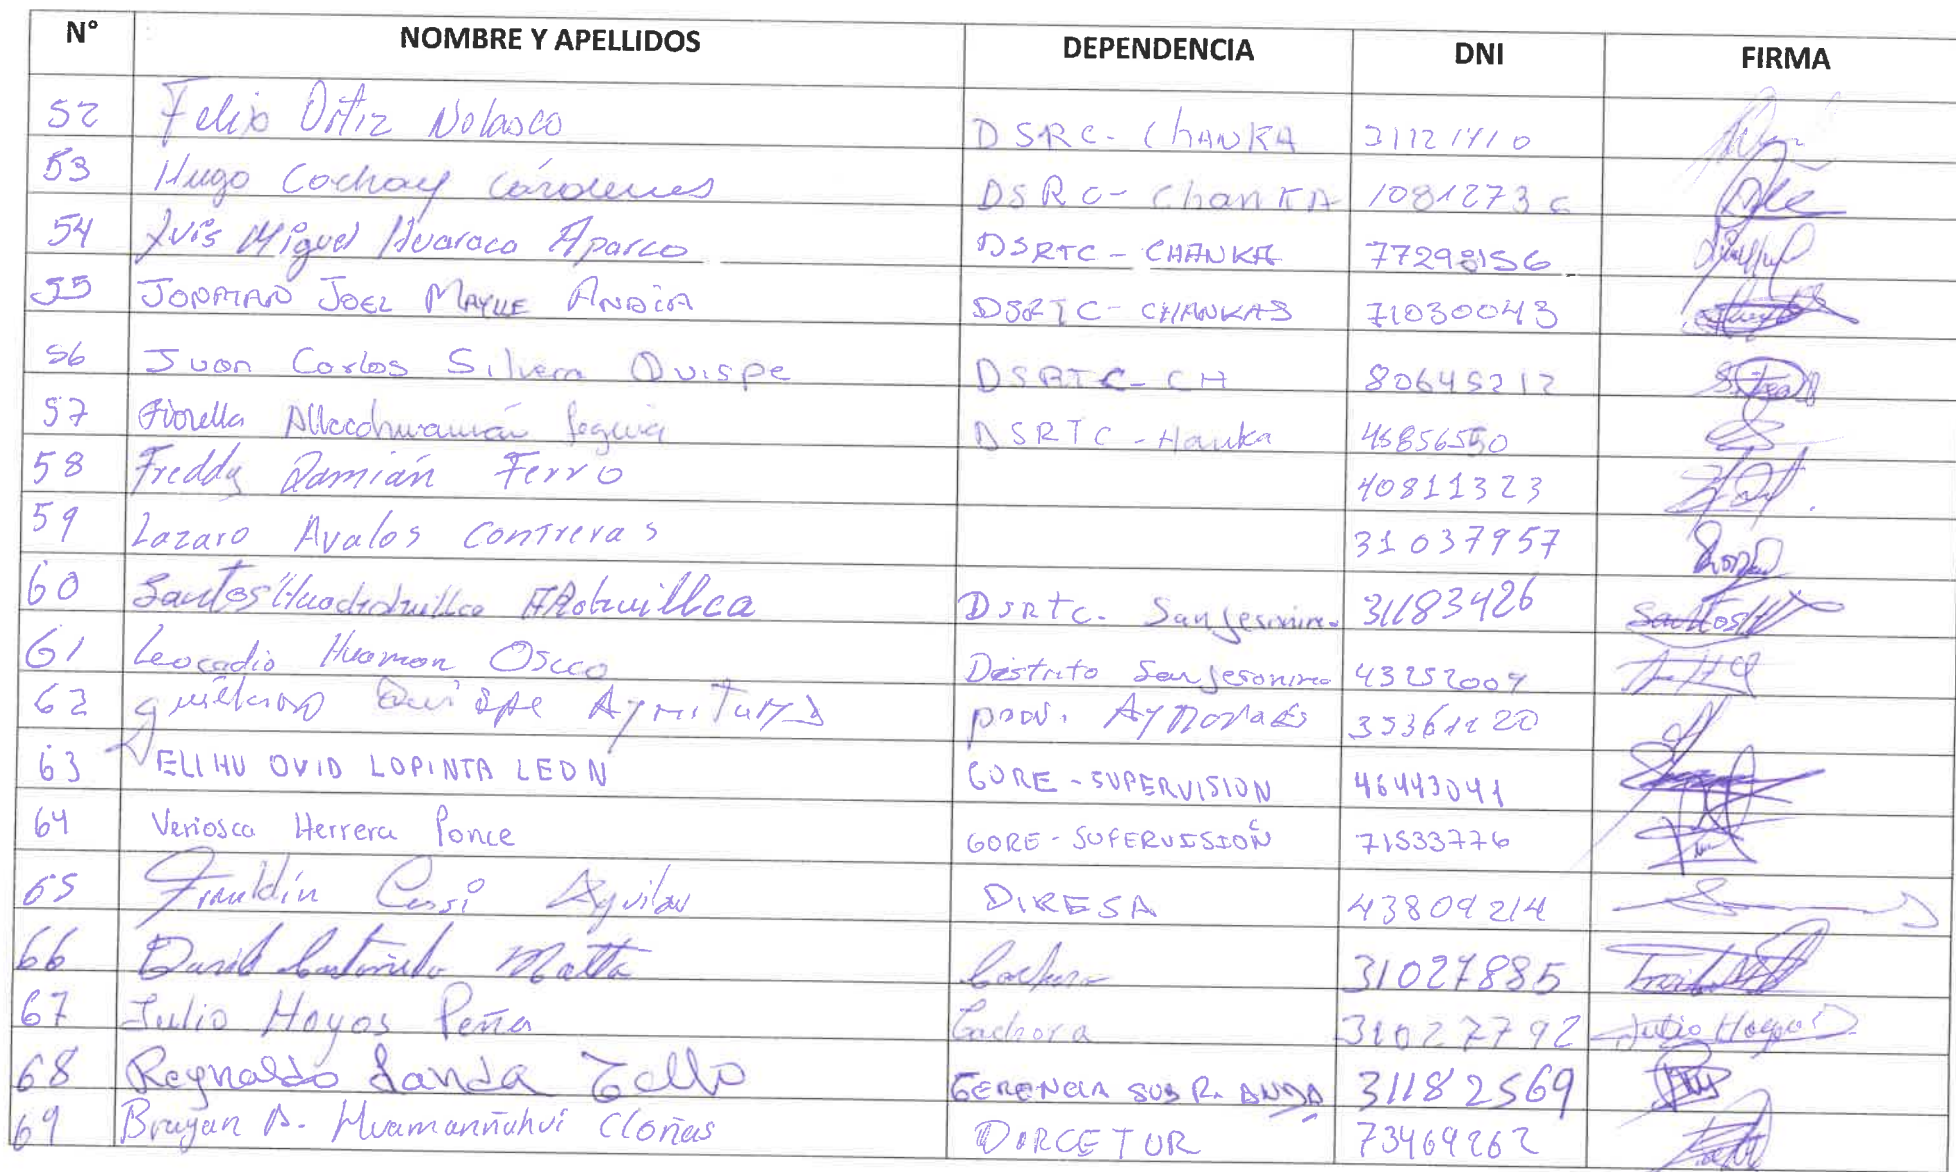 N° NOMBRE Y APELLIDOS DEPENDENCIA DNI FIRMA
52 Felix Ortiz Nolasco DSRC- ChANKA 31121410
53 Hugo Cochay Cárdenes DSRC- ChanKA 1081273
54 Luis Miguel Huaraca Aparco DSRTC - CHANKA 77298156
55 JONATAN JOEL MAYUE ANDIA DSRTC - CHANKAS 71030043
56 Juan Carlos Silvera Quispe DSRTC - CH 80645212
57 Fiorella Allccahuamán DSRTC - Hanka 46856550
58 Freddy Damián Ferro 40811323
59 Lazaro Avalos Contreras 31037957
60 Santos DSRTC. San Jeronimo 31183426 Santos
61 Leocadio Huaman Oscco Distrito San Jeronimo 43252009
62 Quispe prov. 33361220
63 ELIHU OVID LOPINTA LEON GORE - SUPERVISION 46443041
64 Veriosca Herrera Ponce GORE - SUPERVISIÓN 71533776
65 Franklin Cusi Aguilar DIRESA 43809214
66 Matta Cachora 31027885
67 Julio Hoyos Peña Cachora 31027792 Julio Hoyos
68 Reynaldo Landa Tello GERENCIA SUB R. ANDA 31182569
69 Brayan A. Huamanñahui Cloñas DIRCETUR 73469262